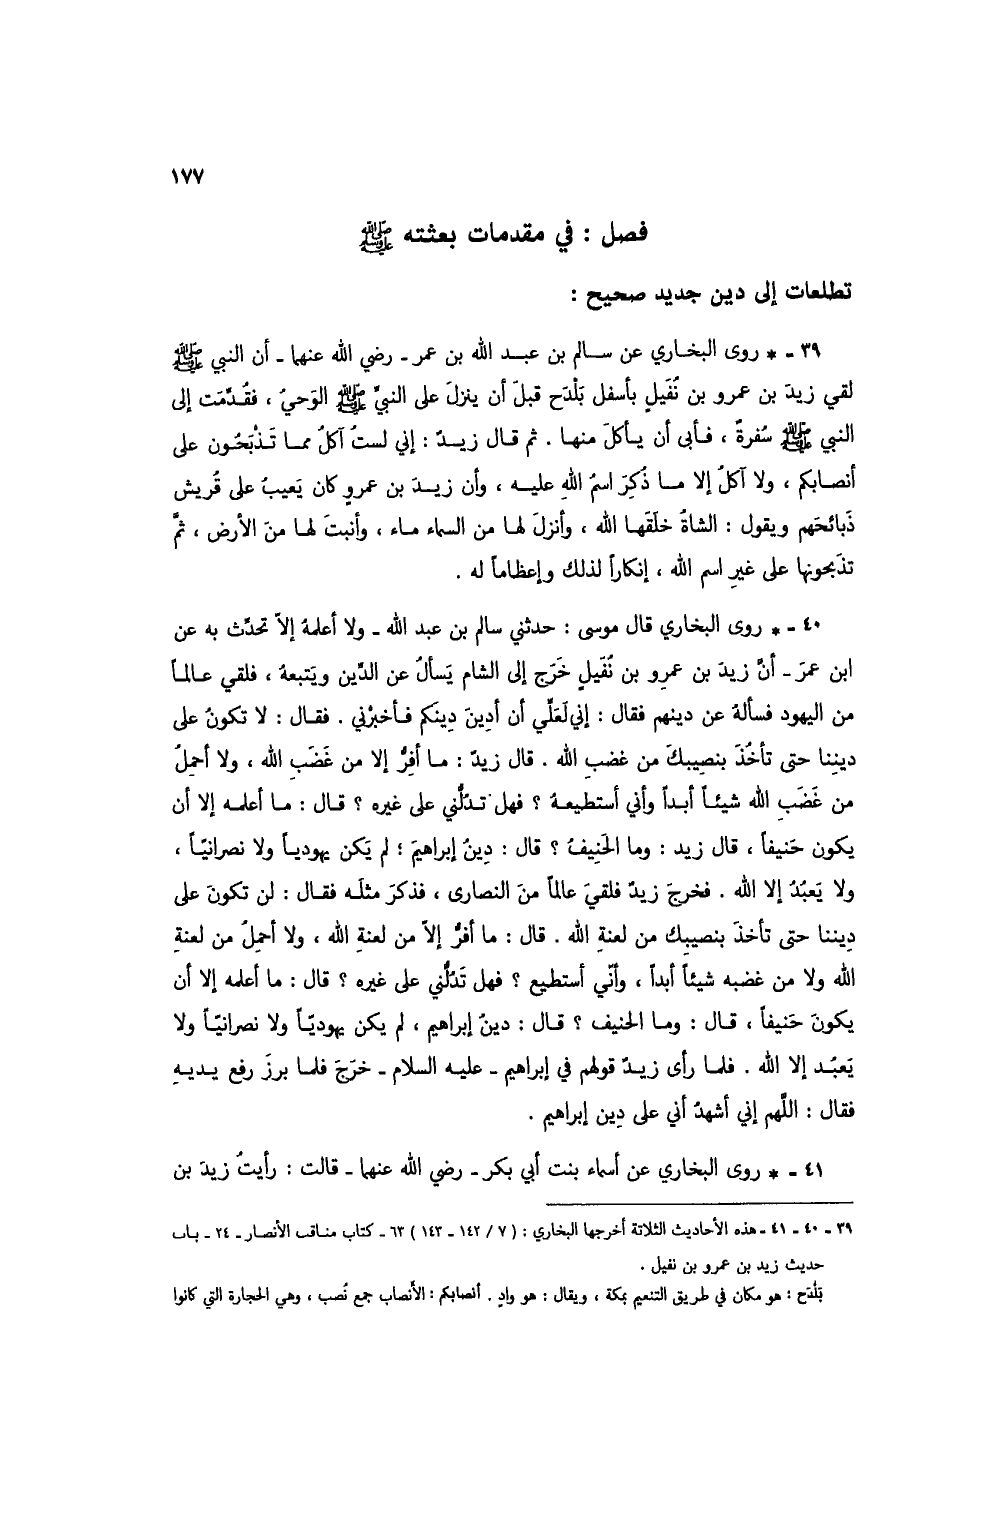 ١٧٧
فصل : في مقدمات بعثته ﷺ
تطلعات إلى دين جديد صحيح :
٣٩ - * روى البخاري عن سالم بن عبد الله بن عمر - رضي الله عنهما - أن النبي ﷺ
لقي زيدَ بن عمرو بن نُفَيلٍ بأسفل بَلْدَح قبلَ أن ينزلَ على النبيِّ ﷺ الوَحيُ ، فقُدِّمَت إلى
النبي ﷺ سُفرةٌ ، فأبى أن يأكلَ منها . ثم قال زيدٌ : إني لستُ آكلُ مما تَذْبَحُون على
أنصابكم ، ولا آكلُ إلا ما ذُكِرَ اسمُ اللهِ عليه ، وأن زيدَ بن عمروٍ كان يَعيبُ على قُريش
ذَبائحَهم ويقول : الشاةُ خلَقَها الله ، وأنزلَ لها من السماء ماء ، وأنبتَ لها منَ الأرض ، ثمَّ
تذبحونها على غيرِ اسم الله ، إنكاراً لذلك وإعظاماً له .
٤٠ - * روى البخاري قال موسى : حدثني سالم بن عبد الله - ولا أعلمهُ إلاّ تحدَّث به عن
ابن عمرَ - أنَّ زيدَ بن عمرِو بن نُفَيلٍ خَرَج إلى الشام يَسألُ عن الدِّين ويَتبعهُ ، فلقي عالماً
من اليهود فسألهُ عن دينهم فقال : إني لَعَلّي أن أدِينَ دِينَكم فأخبرْني . فقال : لا تكونُ على
ديننا حتى تأخُذَ بنصيبكَ من غضبِ الله . قال زيدٌ : ما أفِرُّ إلا من غَضَبِ الله ، ولا أحملُ
من غَضَبِ الله شيئاً أبداً وأني أستطيعهُ ؟ فهل تدُلُّني على غيره ؟ قال : ما أعلمه إلا أن
يكون حَنيفاً ، قال زيد : وما الحَنِيفُ ؟ قال : دِينُ إبراهيمَ ؛ لم يَكن يهودياً ولا نصرانيّاً ،
ولا يَعبُدُ إلا الله . فخرجَ زيدٌ فلقيَ عالماً منَ النصارى ، فذكرَ مثلَه فقال : لن تكونَ على
ديننا حتى تأخذَ بنصيبك من لعنةِ الله . قال : ما أفرُّ إلاّ من لعنةِ الله ، ولا أحملُ من لعنةِ
الله ولا من غضبه شيئاً أبداً ، وأنّي أستطيع ؟ فهل تَدُلُّني على غيره ؟ قال : ما أعلمه إلا أن
يكونَ حَنيفاً ، قال : وما الحنيف ؟ قال : دينُ إبراهيم ، لم يكن يهوديّاً ولا نصرانيّاً ولا
يَعبُد إلا الله . فلما رأى زيدٌ قولهم في إبراهيم - عليه السلام - خرَجَ فلما برزَ رفع يديهِ
فقال : اللَّهم إني أشهدُ أني على دِين إبراهيم .
٤١ - * روى البخاري عن أسماء بنت أبي بكر - رضي الله عنهما - قالت : رأيتُ زيدَ بن
٣٩ - ٤٠ - ٤١ - هذه الأحاديث الثلاثة أخرجها البخاري : ( ٧ / ١٤٢ - ١٤٣ ) ٦٣ - كتاب مناقب الأنصار - ٢٤ - باب
حديث زيد بن عمرو بن نفيل .
بَلْدَح : هو مكان في طريق التنعيم بمكة ، ويقال : هو وادٍ . أنصابكم : الأنصاب جمع نُصب ، وهي الحجارة التي كانوا